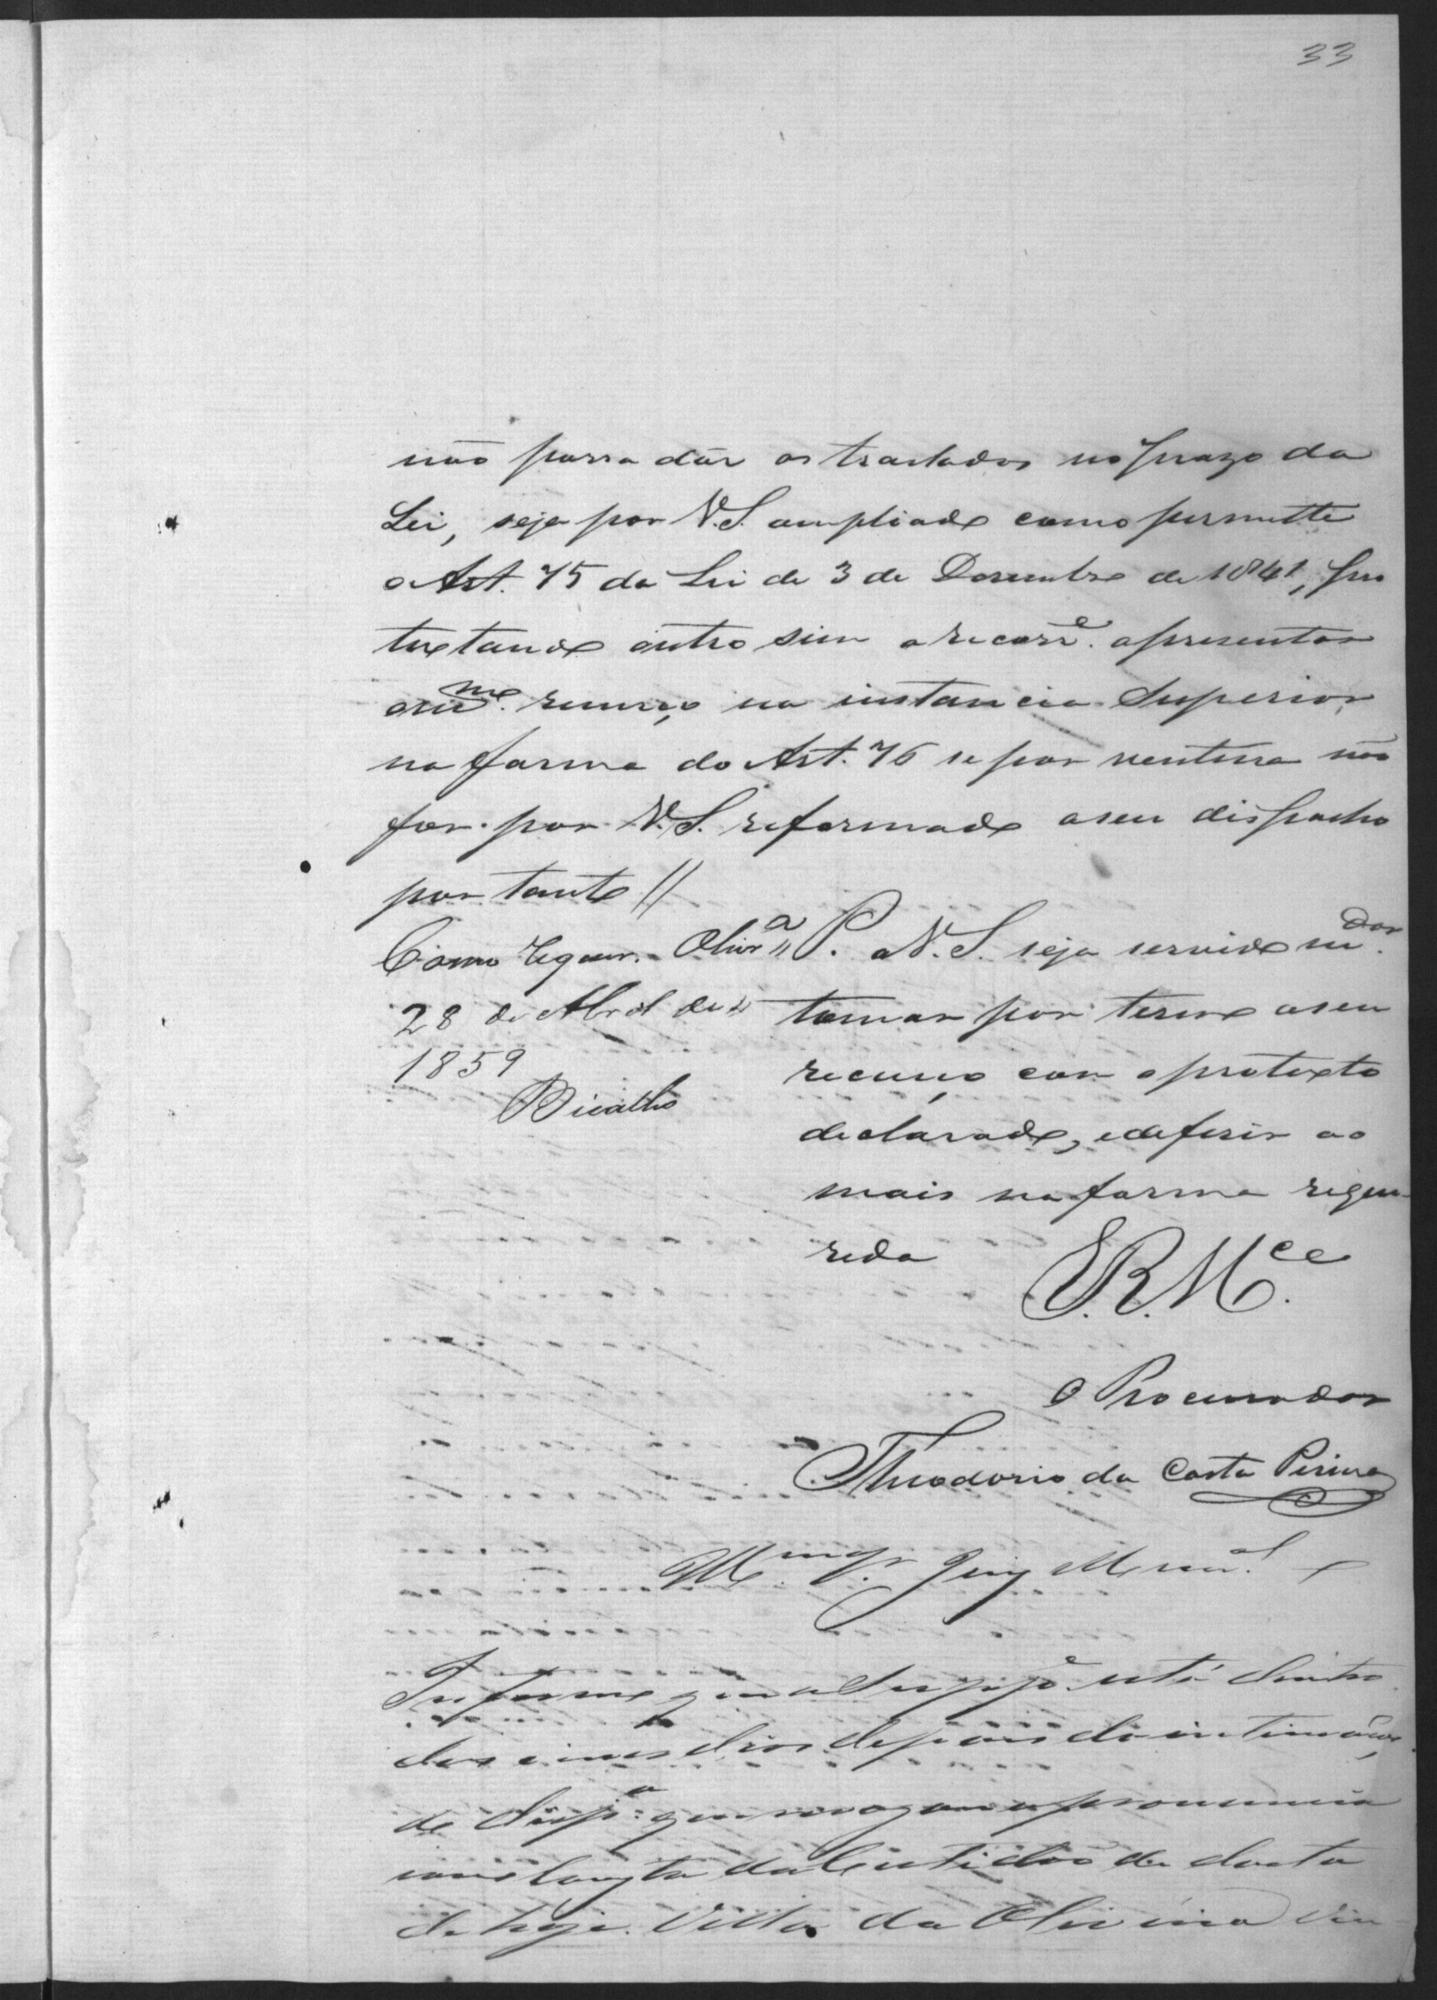 33
não possa dár os traslados no prazo da
Lei, seja por V.S. ampliado como permitte
o Art. 75 da Lei de 3 de Desembro de 1841, pro
textando outro sim o recorr.e apresentar
o m.mo recurço na instancia Superior,
na forma do Art. 76 se por ventura não
for por V.S. reformado o seu dispacho
por tanto //
Como requer. Oliv.a 
28 de Abril de
1859
Bicalho
P. a V.S. seja servido m.dar
tomar por termo o seu
recurço com o protexto
declarado, e deferir ao
mais na forma reque-
rida
E.R.M.ce
O Procurador
Theodorio da Costa Pereira
Juiz Mun.al
Informo que a Supp.e está dentro
dos cinco dias depois da intimação
do desp.o que revogou a pronuncia
constante da Certidão de data
de hoje. Villa da Oliveira vin